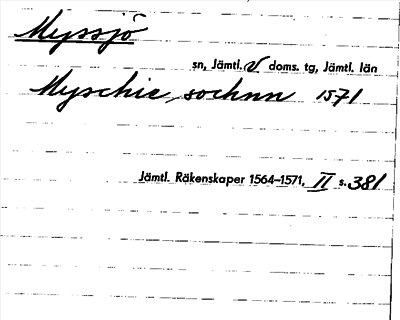 Myssjö
sn, Jämtl. V doms. tg, Jämtl. län
Myschie, sochnn 1571
Jämtl. Räkenskaper 1564-1571, II s. 381